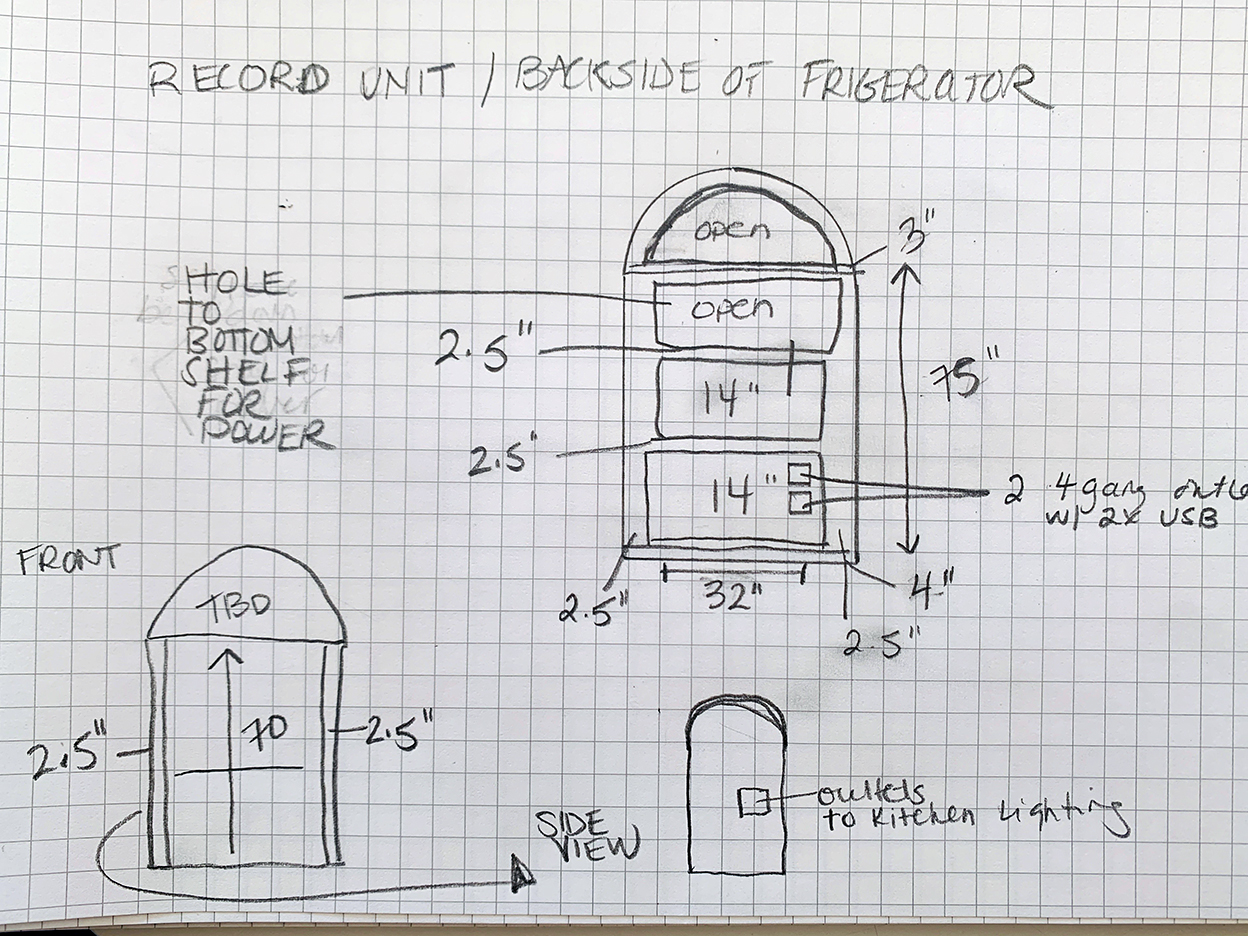 RECORD UNIT / BACKSIDE OF FRIGERATOR
open
3"
HOLE
TO
BOTTOM
SHELF
FOR
POWER
open
2.5"
75"
14"
2.5"
14"
2 4gang
w/ 2x USB
32"
2.5"
4"
2.5"
FRONT
TBD
70
2.5"
2.5"
SIDE
VIEW
outlets
to Kitchen Lighting